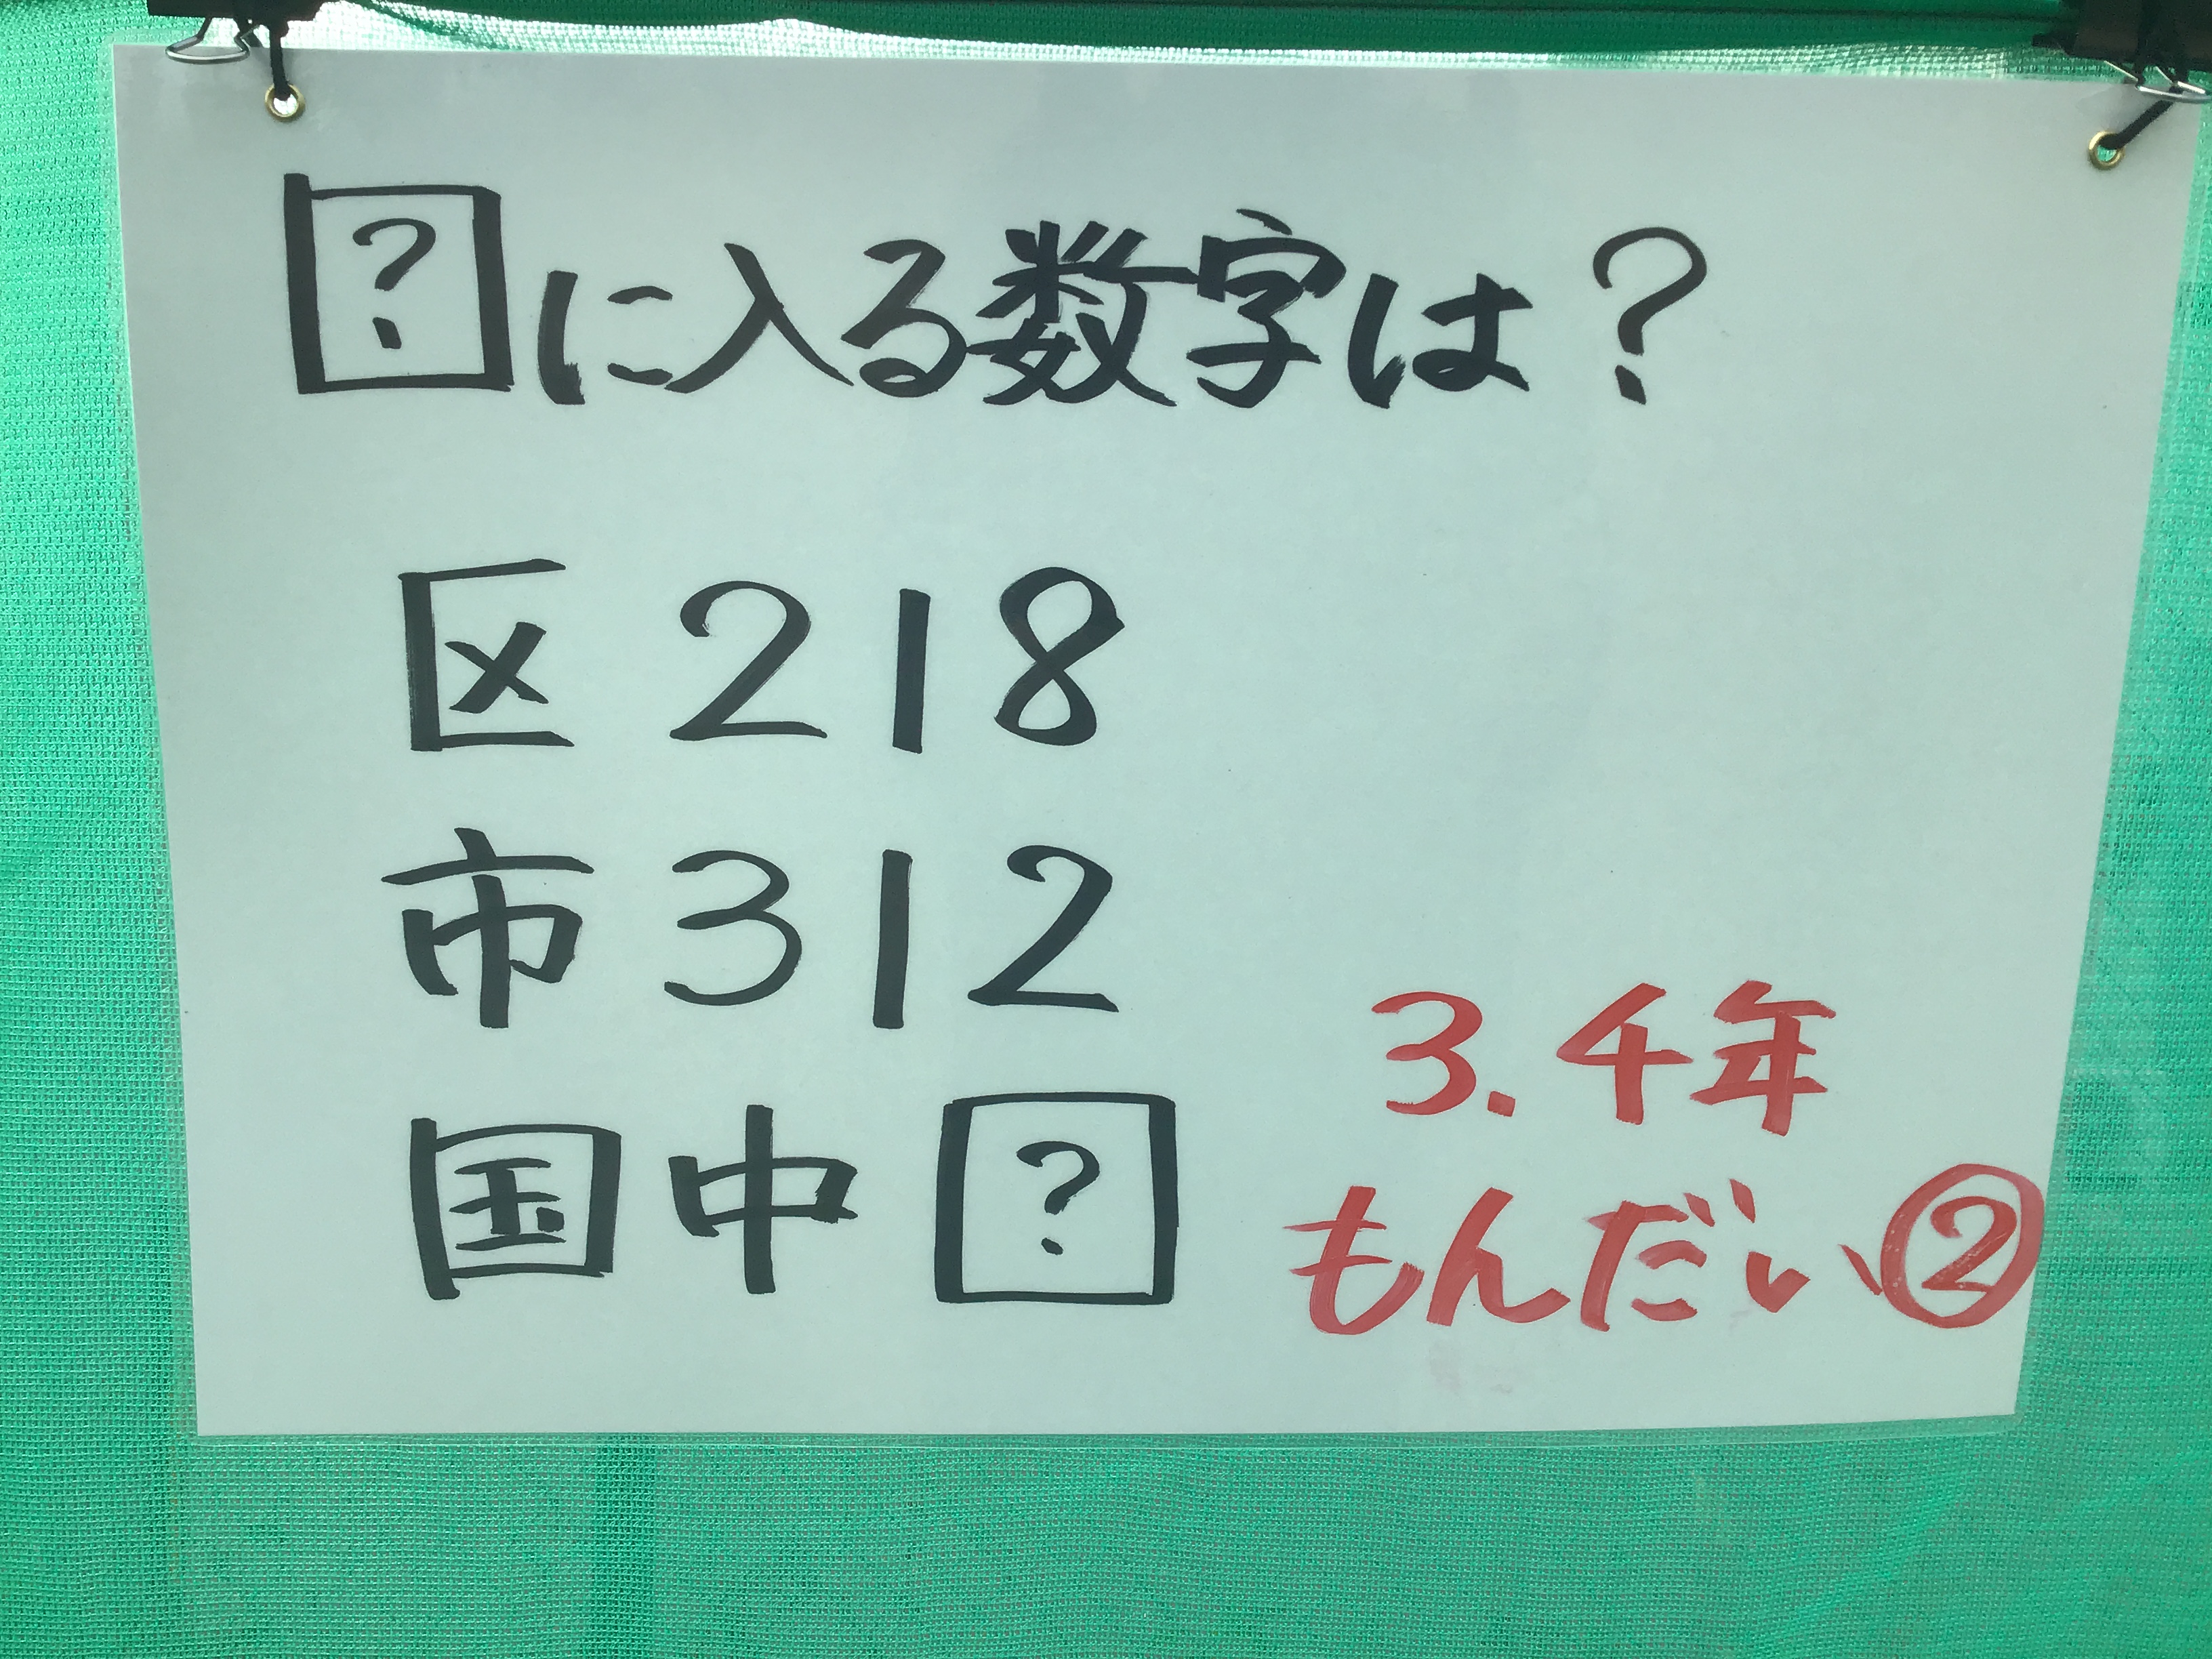 ?に入る数字は?
区218
市312
国中?
3.4年
もんだい②